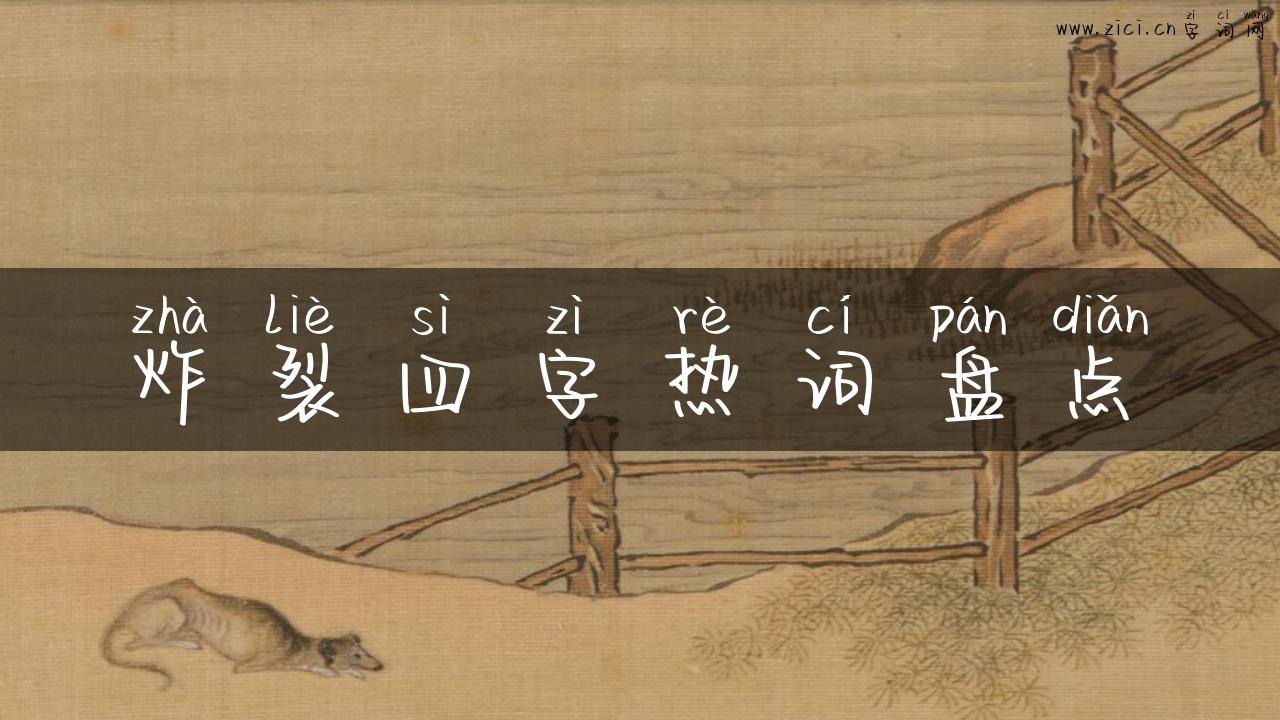 zì cí wǎng
www.zici.cn字词网
zhà liè sì zì rè cí pán diǎn
炸裂四字热词盘点